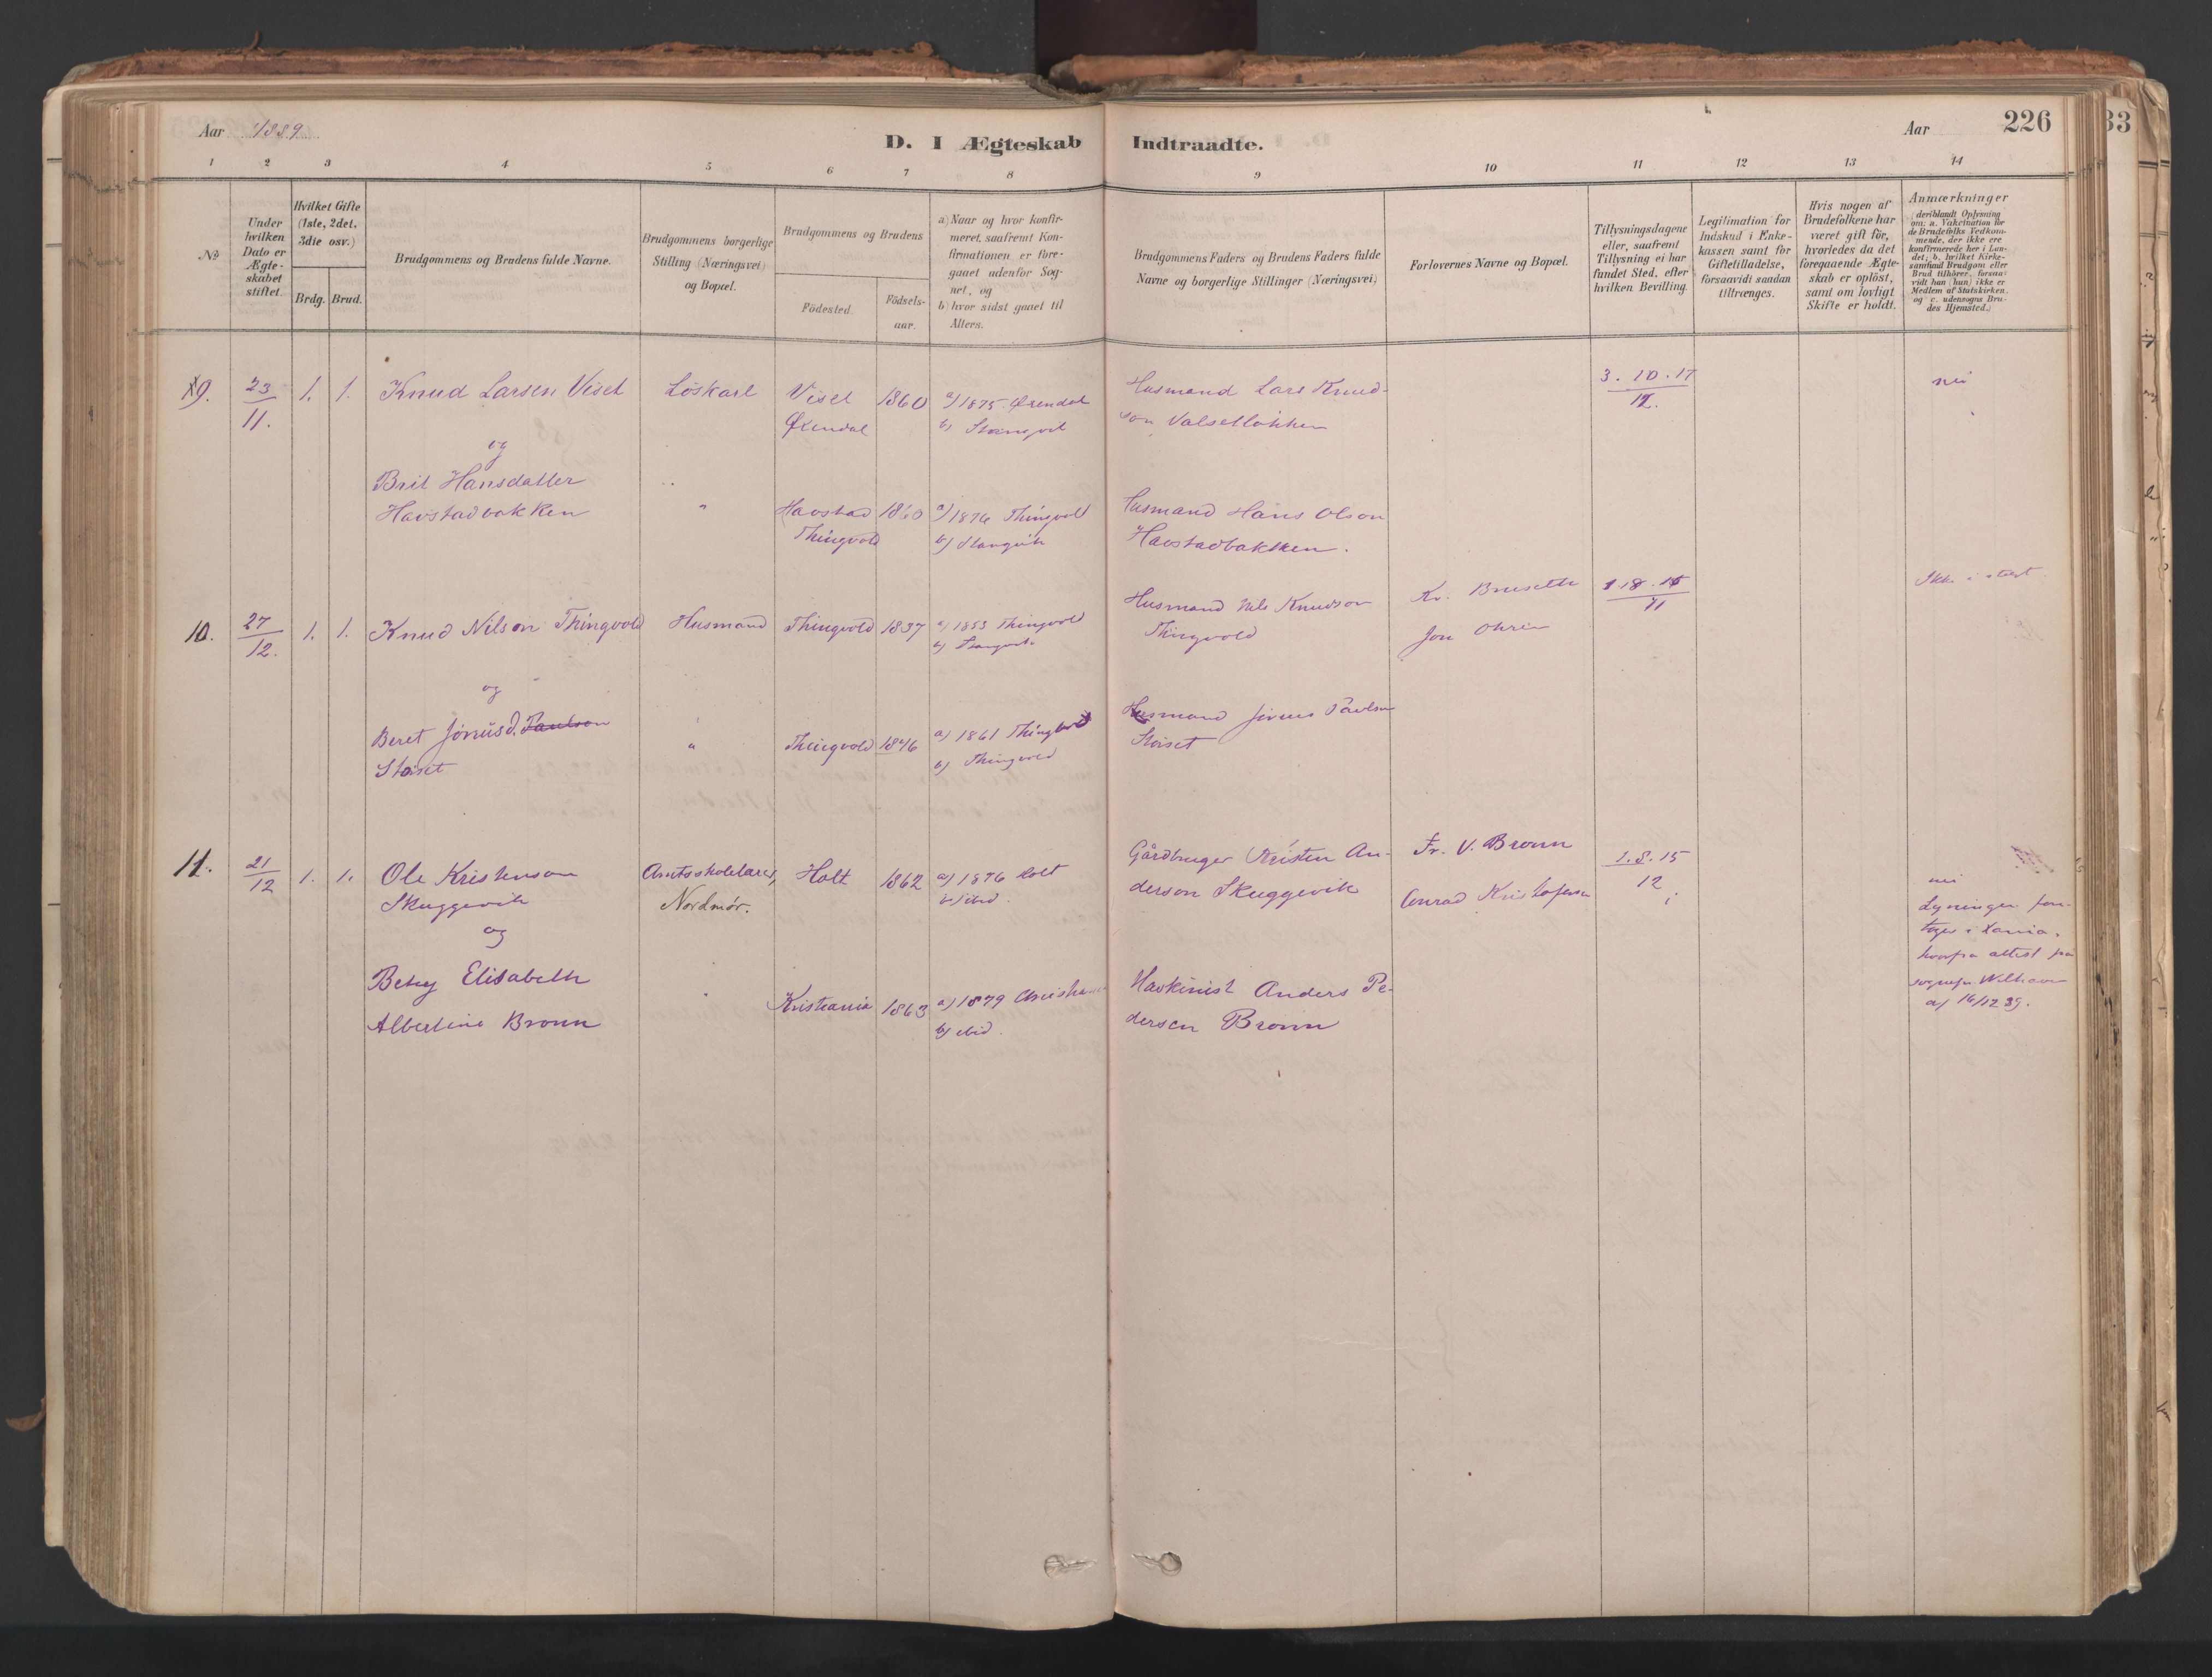 Aar 1889
D. I Ægteskab Indtraadte.
Aar 226
33
1 2 3 4 5 6 7 8 9 10 11 12 13 14
No
Under
hvilken
Dato er
Ægte-
skabet
stiftet.
Hvilket Gifte
(1ste, 2det,
3die osv.)
Brdg. Brud.
Brudgommens og Brudens fulde Navne.
Brudgommens borgerlige
Stilling (Næringsvei)
og Bopæl.
Brudgommens og Brudens
Födested.
Födsels-
aar.
a) Naar og hvor konfir-
meret, saafremt Kon-
firmationen er fore-
gaaet udenfor Sog-
net, og
b) hvor sidst gaaet til
Alters.
Brudgommens Faders og Brudens Faders fulde
Navne og borgerlige Stillinger (Næringsvei)
Forlovernes Navne og Bopæl.
Tillysningsdagene
eller, saafremt
Tillysning ei har
fundet Sted, efter
hvilken Bevilling.
Legitimation for
Indskud i Enke-
kassen samt for
Giftetilladelse,
forsaavidt saadan
tiltrænges.
Hvis nogen af
Brudefolkene har
været gift för,
hvorledes da det
foregaaende Ægte-
skab er oplöst,
samt om lovligt
Skifte er holdt.
Anmærkninger
(deriblandt Oplysning
om: a. Vakcination for
de Brudefolks Vedkom-
mende, der ikke ere
konfirmerede her i Lan-
det; b. hvilket Kirke-
samfund Brudgom eller
Brud tilhörer, forsaa-
vidt han (hun) ikke er
Medlem af Statskirken,
og c. udensogns Bru-
des Hjemsted.)
9. 23/11. 1. 1. Knud Larsen Viset Löskarl Viset 1860 a) 1875 Øxendal
Øxendal b) Stangvik
Husmand Lars Knud-
son Valsetløkken
3. 10. 17
12.
nei
og
Brit Hansdatter
Havstadbakken " Havstad 1860 a) 1876 Thingvold
Thingvold b) Stangvik
Husmand Hans Olson
Havstadbakken.
10. 27/12. 1. 1. Knud Nilson Thingvold Husmand Thingvold 1837 a) 1853 Thingvold
b) Stangvik
Husmand Nils Knudson
Thingvold
Kr. Bruseth
Jon Ohren
1. 8. 15
11
Ikke i slægt
og
Beret Jonusd. Paulson
Stöiset " Thingvold 1846 a) 1861 Thingvold
b) Thingvold
Husmand Jonus Paulson
Stöiset
11. 21/12 1. 1. Ole Kristenson Amtsskolelærer, Holt 1862 a) 1876 Holt
Skuggevik Nordmør. b) ibid.
Gårdbruger Kristen An-
derson Skuggevik
Fr. V. Bronn
Conrad Kristofersen
1. 8. 15
12
nei
Lysningen fore-
toges i Xania,
hvorfra attest fra
sogrepr. Welhaven
af 16/12 89.
og
Betsy Elisabeth
Albertine Bronn Kristiania 1863 a) 1879 Christiania
b) ibid.
Maskinist Anders Pe-
dersen Bronn